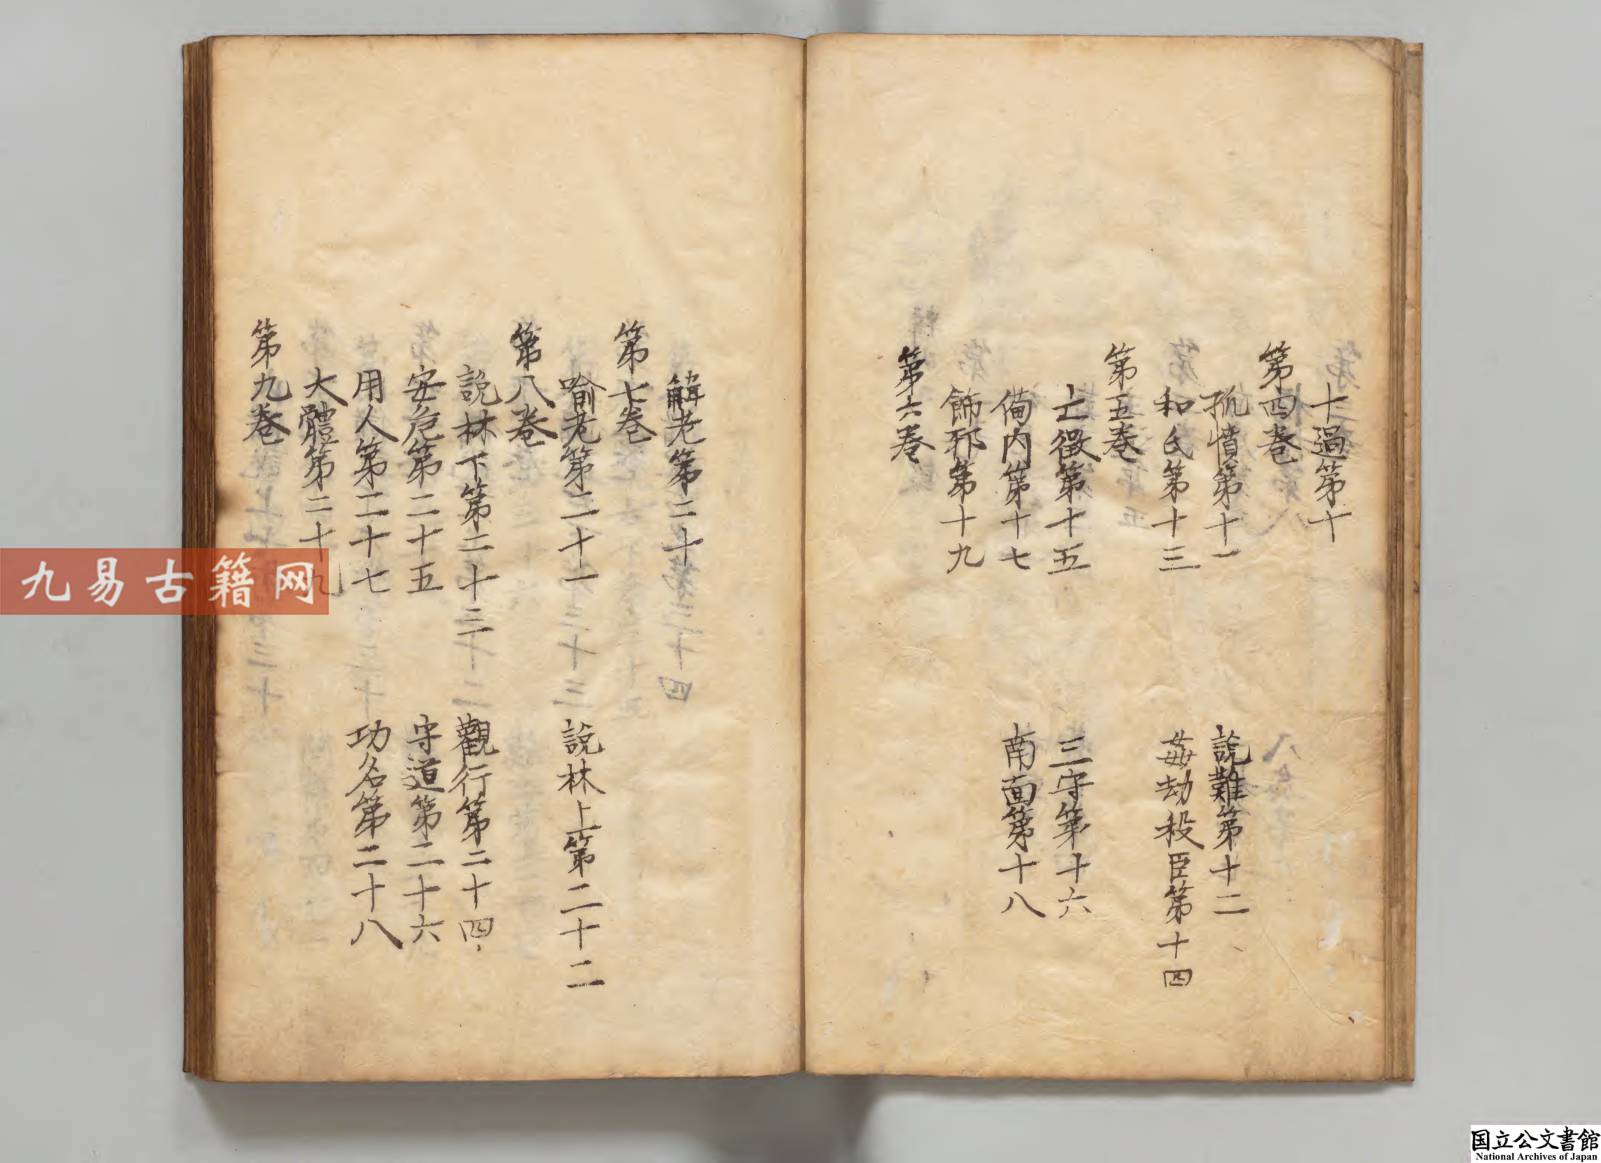 十過第十
第四卷
孤憤第十一
說難第十二
和氏第十三
姦劫殺臣第十四
第五卷
亡徵第十五
三守第十六
備內第十七
南面第十八
飾邪第十九
第六卷
解老第二十
第七卷
喻老第二十一
說林上第二十二
第八卷
說林下第二十三
觀行第二十四
安危第二十五
守道第二十六
用人第二十七
功名第二十八
大體第二十九
第九卷
九易古籍网
国立公文書館
National Archives of Japan